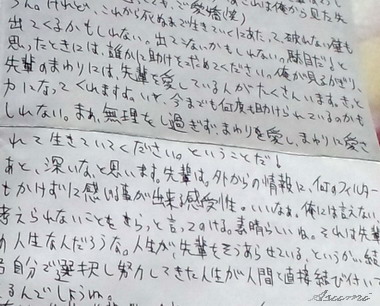 う。けれど、これから死ぬまで生きていくにあたって、破れない壁も
出てくるかもしれない。出てこないかもしれない。駄目だと
思ったときには、誰かに助けを求めてください。俺が見るかぎり、
先輩のまわりには、先輩を愛している人がたくさんいます。きっと
力になってくれますよ。いいえ、今までも何度も助けられているのかも
しれない。まあ、無理をし過ぎず、まわりを愛し、まわりに愛さ
れて生きていてください。ということだ!
あと、深いなぁと思います。先輩は。外からの情報に、何のフィルター
もかけずに感じる事が出来る感受性。いいなぁ。俺には言えない、
考えられないこともさらっと言ってのける。素晴らしいね。それは先輩
の人生なんだろうな。人生が、先輩をそうあらせている、というか、結
局自分で選択し努力してきた人生が人間と直接結び付いて
るんでしょうね。